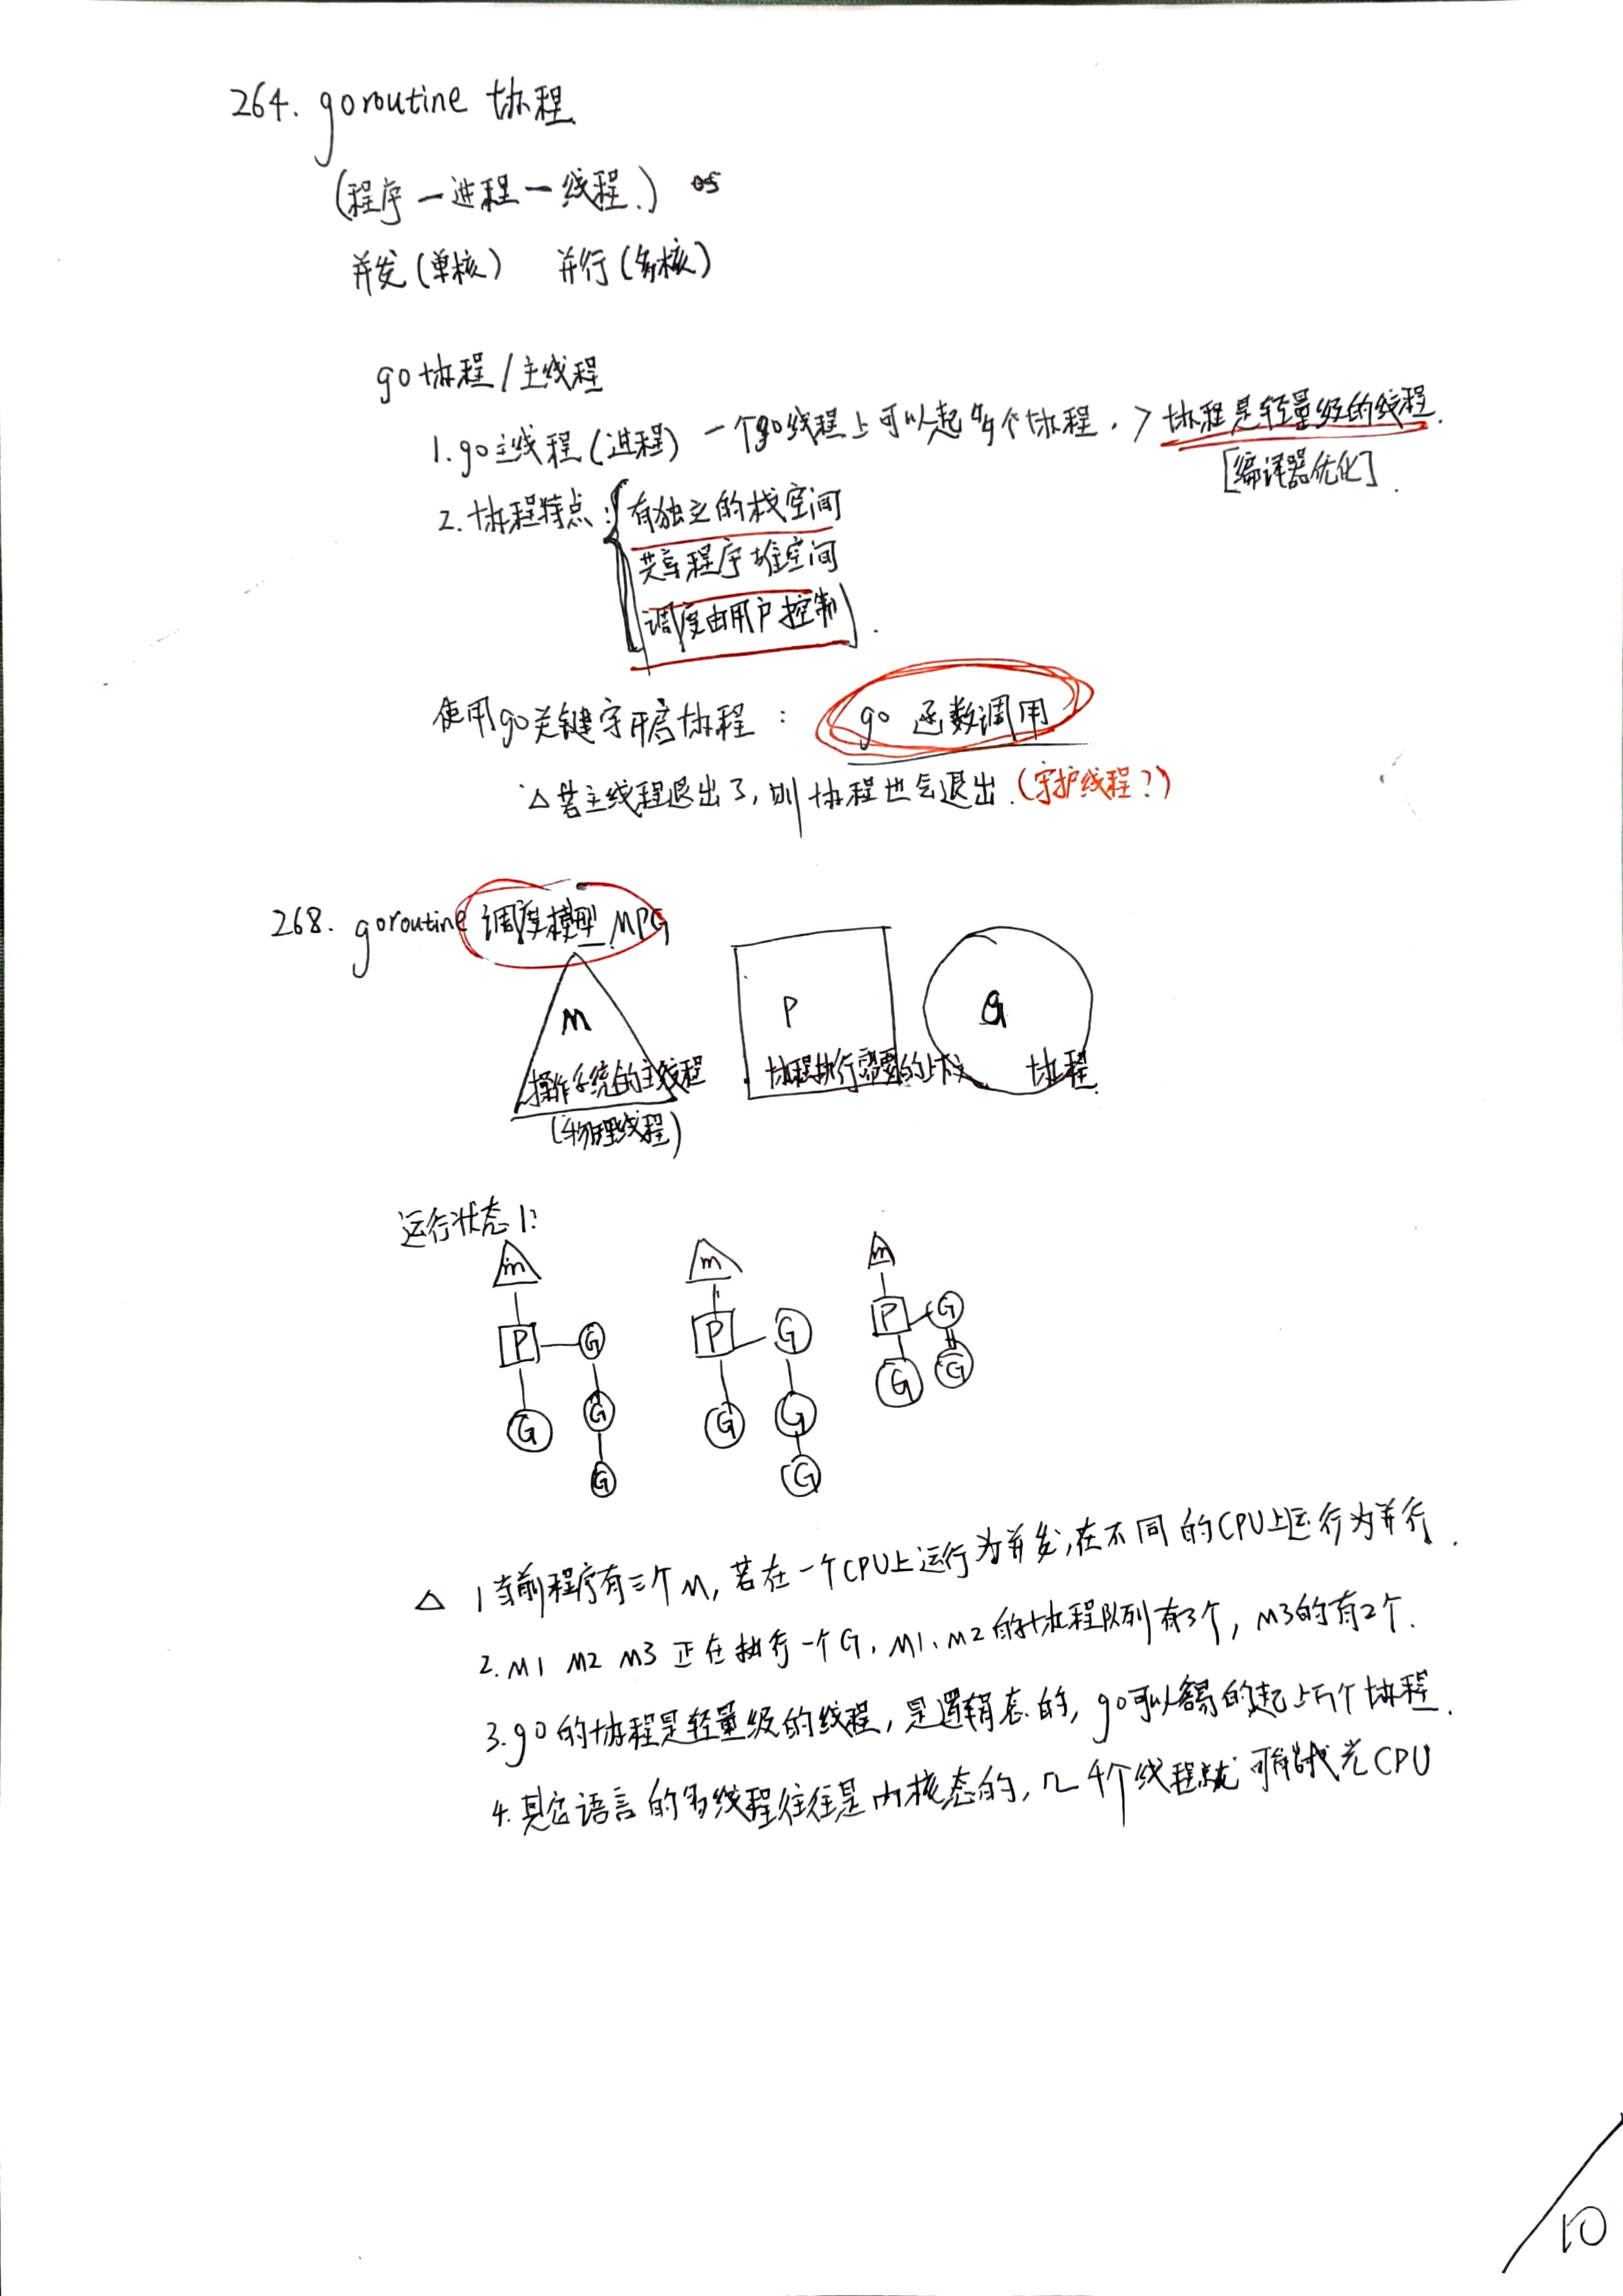 264. goroutine 协程
(程序一进程一线程.) os
并发(单核) 并行(多核)
go协程/主线程
1. go主线程(进程) 一个go线程上可以起多个协程. > 协程是轻量级的线程.
[编译器优化].
2. 协程特点: 有独立的栈空间
共享程序堆空间
调度由用户控制.
使用go关键字开启协程: go 函数调用
△若主线程退出了,则协程也会退出.(守护线程?)
268. goroutine 调度模型 MPG
M P G
操作系统的主线程 协程执行需要的上下文 协程
(物理线程)
运行状态1:
m m m
P G P G P G
G G G G G G
G G
△ 1当前程序有三个M,若在一个CPU上运行为并发,在不同的CPU上运行为并行.
2. M1 M2 M3 正在执行一个G, M1、M2的协程队列有3个, M3的有2个.
3. go的协程是轻量级的线程,是逻辑态的, go可以容易的起上万个协程.
4. 其它语言的多线程往往是内核态的,几千个线程就可能耗光CPU
10